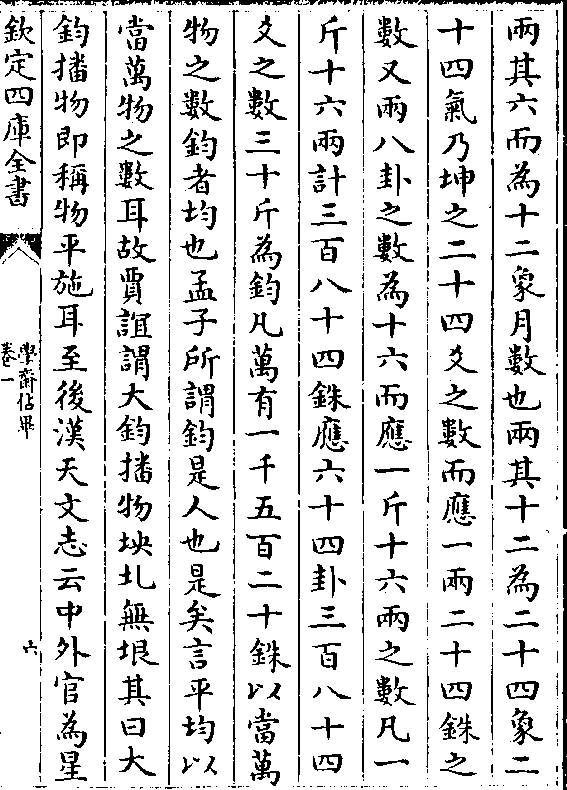 兩其六而為十二象月數也兩其十二為二十四象二
十四氣乃坤之二十四爻之數而應一兩二十四銖之
數又兩八卦之數為十六而應一斤十六兩之數凡一
斤十六兩計三百八十四銖應六十四卦三百八十四
爻之數三十斤為鈞凡萬有一千五百二十銖以當萬
物之數鈞者均也孟子所謂鈞是人也是矣言平均以
當萬物之數耳故賈誼謂大鈞播物坱圠無垠其曰大
鈞播物即稱物平施耳至後漢天文志云中外官為星
欽定四庫全書
學齋佔畢
卷一
六